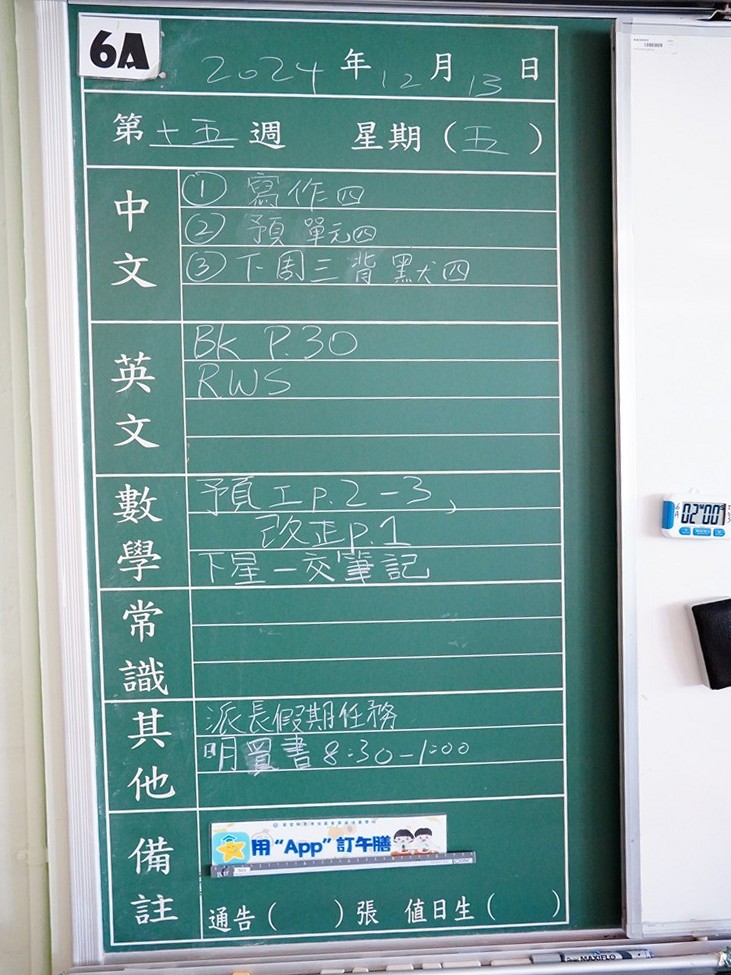 6A
2024年12月13日
第十五週 星期（五）
中文
① 寫作四
② 預 單元四
③ 下周三背默四
英文
BK P.30
RWS
數學
預工p.2-3、
改正p.1
下星一交筆記
常識
其他
派長假期任務
明買書 8:30-1:00
備註
用“App”訂午膳
通告（ ）張 值日生（ ）
02 00